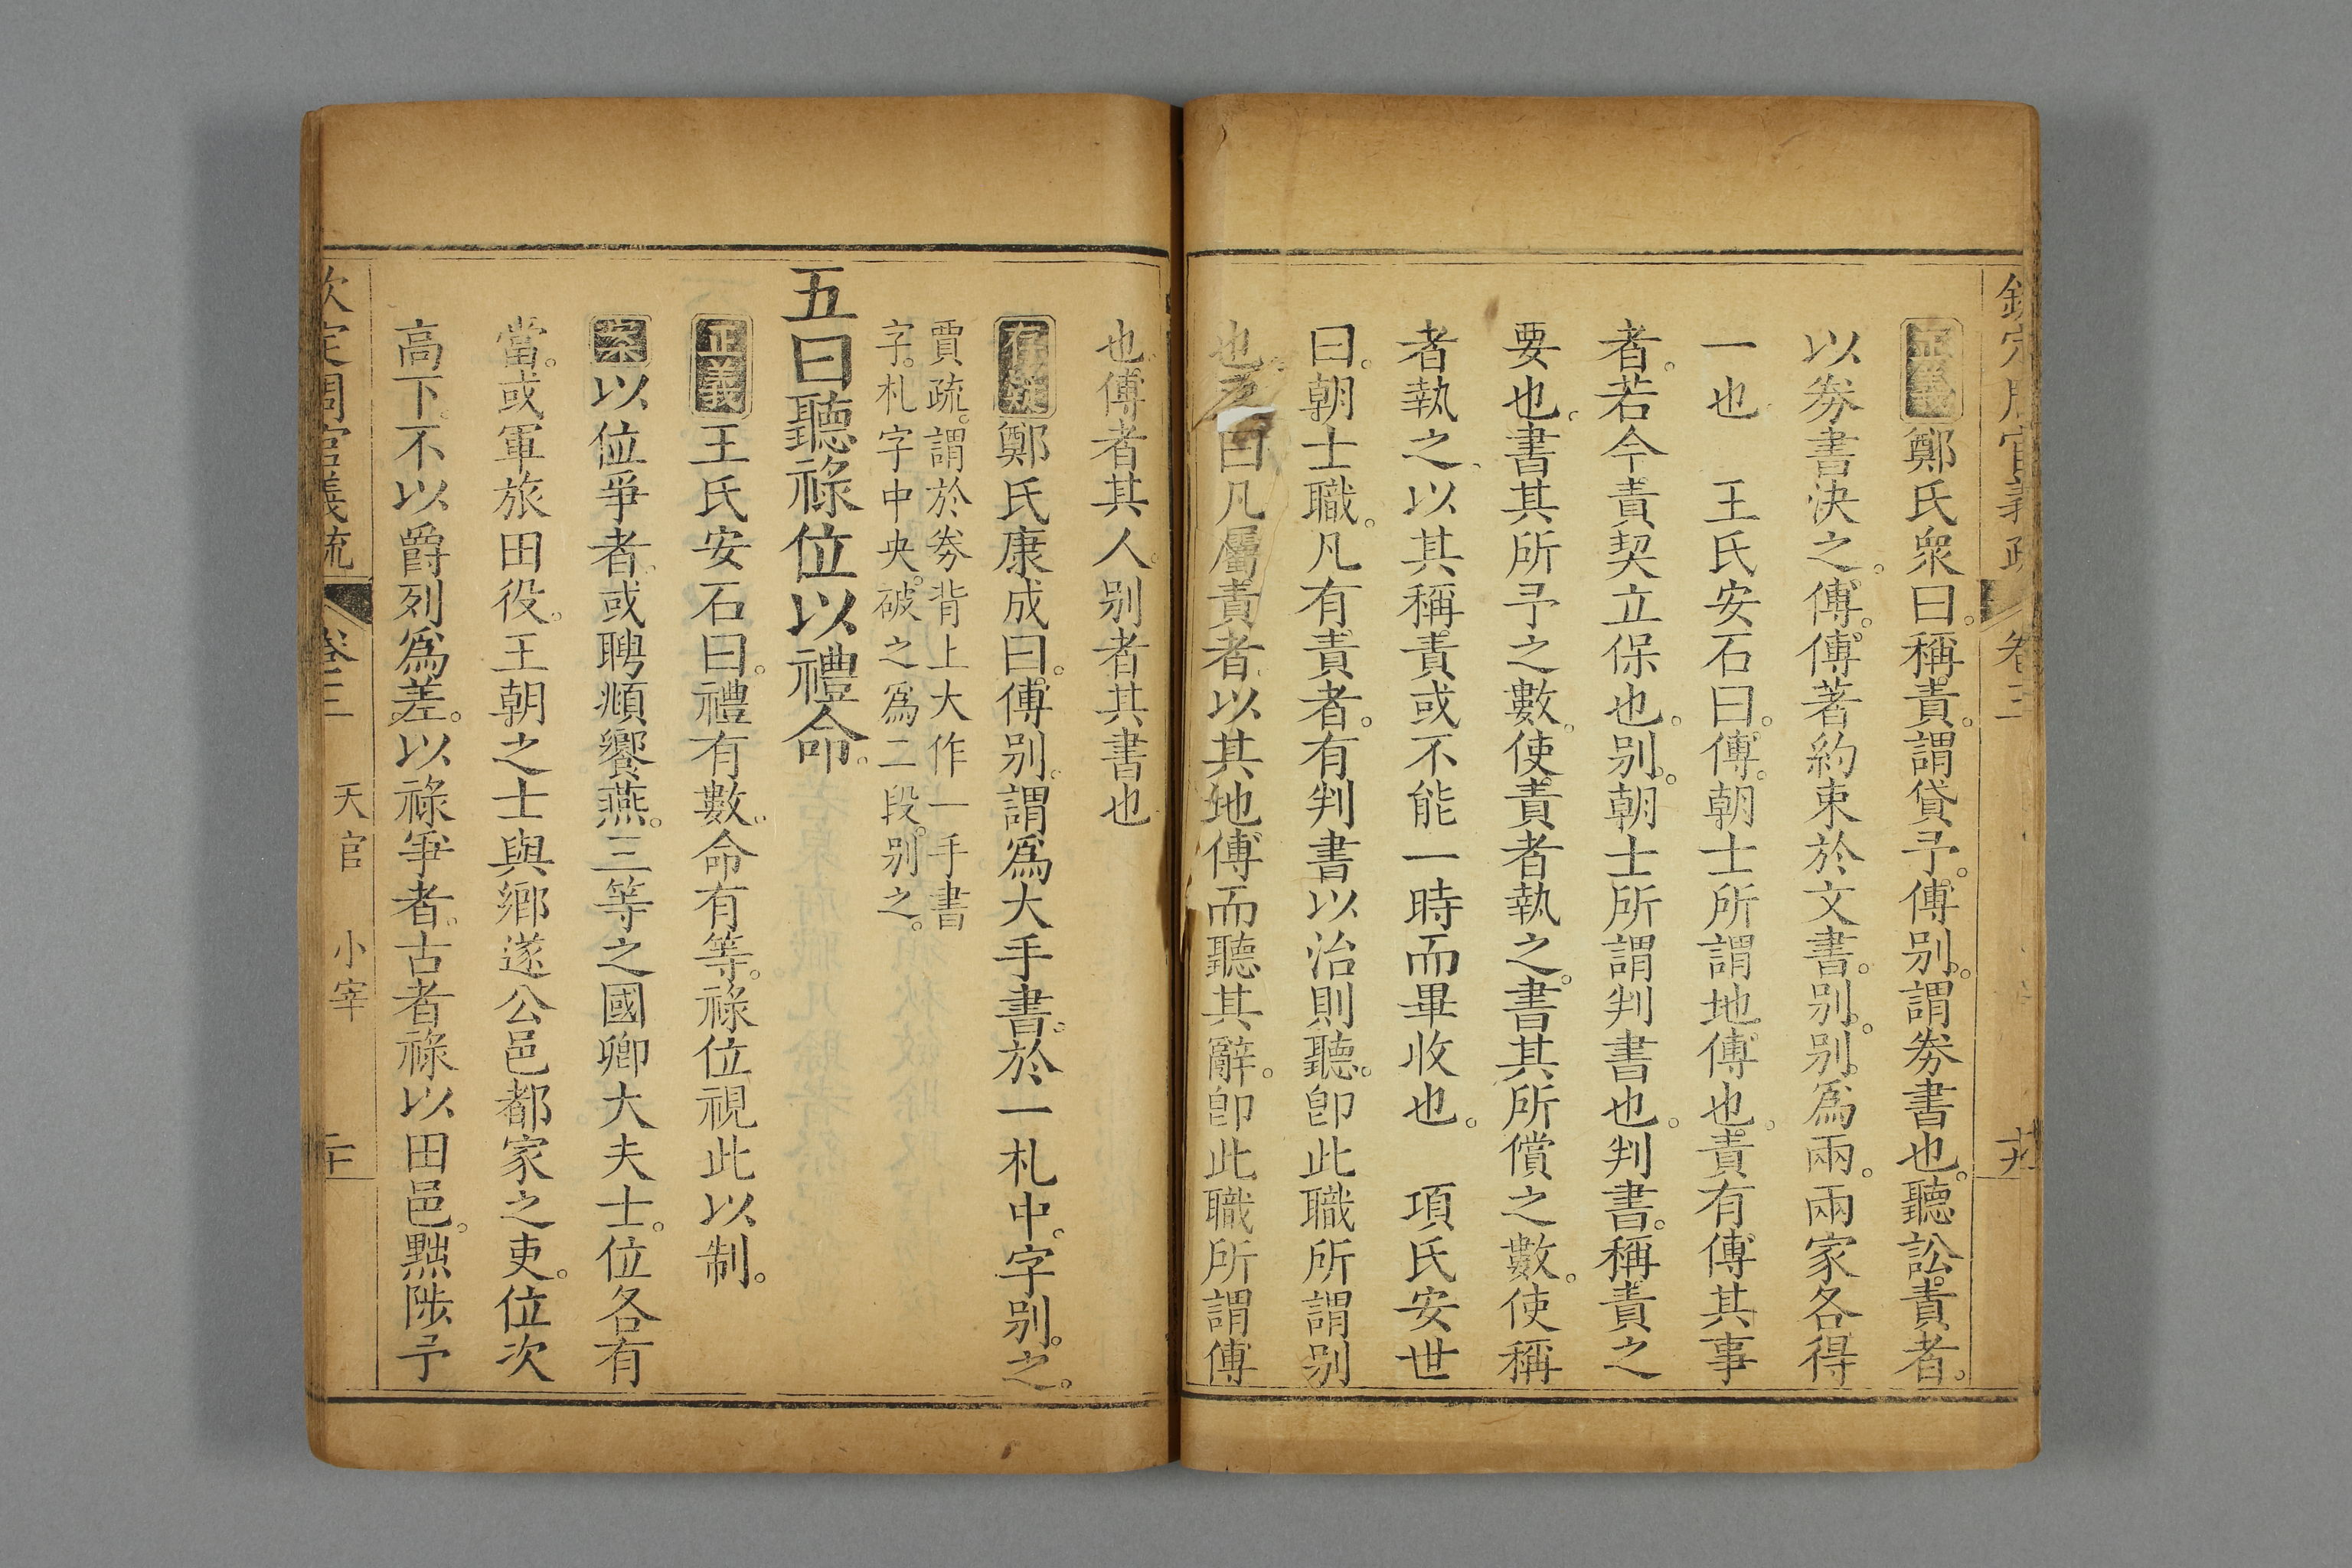 欽定周官義疏 卷三 十九
正義鄭氏衆曰。稱責。謂貸予。傅别。謂券書也。聽訟責者。
以券書決之。傅。傅著約束於文書。别。别爲兩。兩家各得
一也 王氏安石曰。傅。朝士所謂地傅也。責有傅其事
者。若今責契立保也。别。朝士所謂判書也。判書。稱責之
要也。書其所予之數。使責者執之。書其所償之數。使稱
者執之、以其稱責或不能一時而畢收也。 項氏安世
曰。朝士職。凡有責者。有判書以治則聽。卽此職所謂别
也。又曰凡屬責者、以其地傅而聽其辭。卽此職所謂傅
也。傅者其人。别者其書也
存疑鄭氏康成曰。傅别。謂爲大手書。於一札中。字别之。
賈疏。謂於券背上大作一手書
字。札字中央。破之爲二段。别之。
五曰聽祿位以禮命。
正義王氏安石曰。禮有數。命有等。祿位視此以制。
案以位爭者、或聘頫饗燕。三等之國卿大夫士。位各有
當。或軍旅田役。王朝之士與鄉遂公邑都家之吏。位次
高下。不以爵列爲差。以祿爭者。古者祿以田邑。黜陟予
欽定周官義疏 卷三 天官 小宰 二十